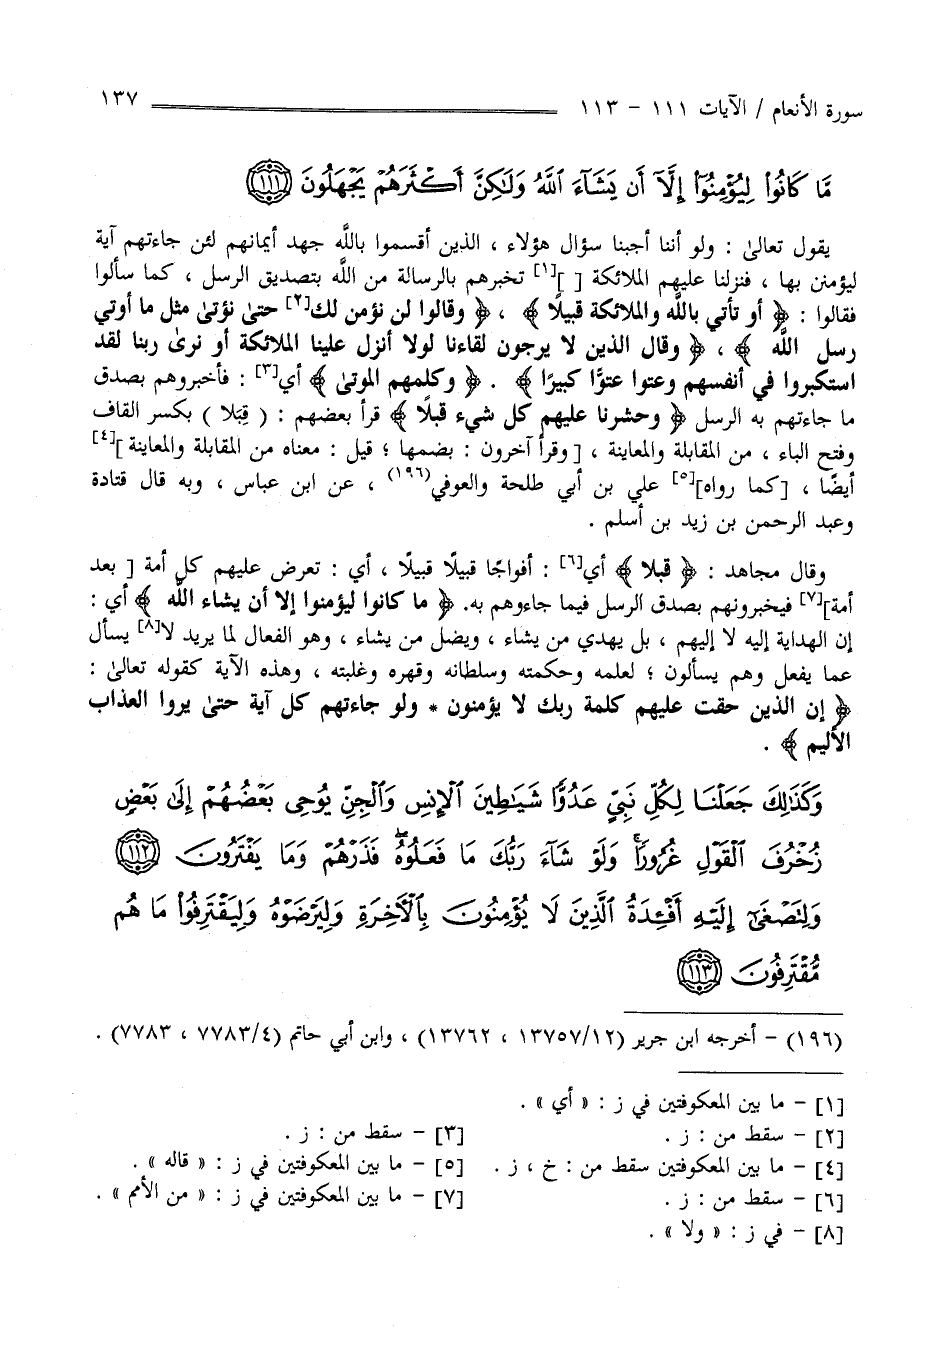 سورة الأنعام / الآيات ١١١ - ١١٣ ١٣٧
مَّا كَانُوا۟ لِيُؤْمِنُوٓا۟ إِلَّآ أَن يَشَآءَ ٱللَّهُ وَلَـٰكِنَّ أَكْثَرَهُمْ يَجْهَلُونَ ١١١
يقول تعالىٰ : ولو أننا أجبنا سؤال هؤلاء ، الذين أقسموا باللَّه جهد أيمانهم لئن جاءتهم آية
ليؤمنن بها ، فنزلنا عليهم الملائكة [ ][١] تخبرهم بالرسالة من اللَّه بتصديق الرسل ، كما سألوا
فقالوا : ﴿ أو تأتي باللَّه والملائكة قبيلًا ﴾ ، ﴿ وقالوا لن نؤمن لك[٢] حتىٰ نؤتىٰ مثل ما أوتي
رسل اللَّه ﴾ ، ﴿ وقال الذين لا يرجون لقاءنا لولا أنزل علينا الملائكة أو نرىٰ ربنا لقد
استكبروا في أنفسهم وعتوا عتوًّا كبيرًا ﴾ . ﴿ وكلمهم الموتىٰ ﴾ أي[٣] : فأخبروهم بصدق
ما جاءتهم به الرسل ﴿ وحشرنا عليهم كل شيء قبلًا ﴾ قرأ بعضهم : ( قِبَلا ) بكسر القاف
وفتح الباء ، من المقابلة والمعاينة ، [ وقرأ آخرون : بضمها ؛ قيل : معناه من المقابلة والمعاينة ][٤]
أيضًا ، [كما رواه][٥] علي بن أبي طلحة والعوفي(١٩٦) ، عن ابن عباس ، وبه قال قتادة
وعبد الرحمن بن زيد بن أسلم .
وقال مجاهد : ﴿ قبلا ﴾ أي[٦] : أفواجًا قبيلًا قبيلًا ، أي : تعرض عليهم كل أمة [ بعد
أمة][٧] فيخبرونهم بصدق الرسل فيما جاءوهم به. ﴿ ما كانوا ليؤمنوا إلا أن يشاء اللَّه ﴾ أي :
إن الهداية إليه لا إليهم ، بل يهدي من يشاء ، ويضل من يشاء ، وهو الفعال لما يريد لا[٨] يسأل
عما يفعل وهم يسألون ؛ لعلمه وحكمته وسلطانه وقهره وغلبته ، وهذه الآية كقوله تعالىٰ :
﴿ إن الذين حقت عليهم كلمة ربك لا يؤمنون * ولو جاءتهم كل آية حتىٰ يروا العذاب
الأليم ﴾ .
وَكَذَٰلِكَ جَعَلْنَا لِكُلِّ نَبِىٍّ عَدُوًّا شَيَـٰطِينَ ٱلْإِنسِ وَٱلْجِنِّ يُوحِى بَعْضُهُمْ إِلَىٰ بَعْضٍ
زُخْرُفَ ٱلْقَوْلِ غُرُورًا ۚ وَلَوْ شَآءَ رَبُّكَ مَا فَعَلُوهُ ۖ فَذَرْهُمْ وَمَا يَفْتَرُونَ ١١٢
وَلِتَصْغَىٰٓ إِلَيْهِ أَفْـِٔدَةُ ٱلَّذِينَ لَا يُؤْمِنُونَ بِٱلْـَٔاخِرَةِ وَلِيَرْضَوْهُ وَلِيَقْتَرِفُوا۟ مَا هُم
مُّقْتَرِفُونَ ١١٣
(١٩٦) - أخرجه ابن جرير (١٣٧٥٧/١٢ ، ١٣٧٦٢) ، وابن أبي حاتم (٧٧٨٣/٤ ، ٧٧٨٣) .
[١] - ما بين المعكوفتين في ز : « أي » .
[٢] - سقط من : ز . [٣] - سقط من : ز .
[٤] - ما بين المعكوفتين سقط من : خ ، ز . [٥] - ما بين المعكوفتين في ز : « قاله » .
[٦] - سقط من : ز . [٧] - ما بين المعكوفتين في ز : « من الأمم » .
[٨] - في ز : « ولا » .